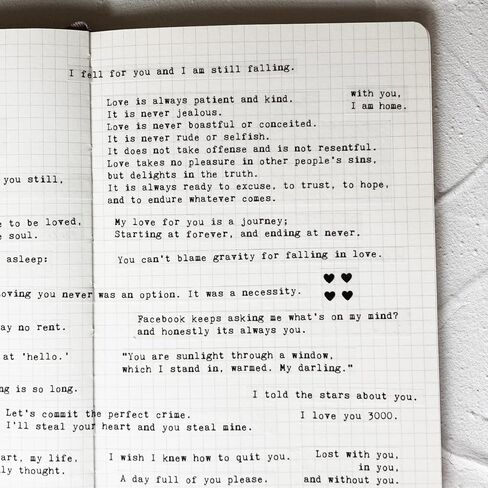 I fell for you and I am still falling.
with you,
I am home.
Love is always patient and kind.
It is never jealous.
Love is never boastful or conceited.
It is never rude or selfish.
It does not take offense and is not resentful.
Love takes no pleasure in other people's sins,
but delights in the truth.
It is always ready to excuse, to trust, to hope,
and to endure whatever comes.
you still,
to be loved,
soul.
My love for you is a journey;
Starting at forever, and ending at never.
asleep:
You can't blame gravity for falling in love.
oving you never was an option. It was a necessity.
Facebook keeps asking me what's on my mind?
and honestly its always you.
ay no rent.
at 'hello.'
"You are sunlight through a window,
which I stand in, warmed. My darling."
ng is so long.
I told the stars about you.
Let's commit the perfect crime.
I'll steal your heart and you steal mine.
I love you 3000.
art, my life.
ly thought.
I wish I knew how to quit you.
A day full of you please.
Lost with you,
in you,
and without you.